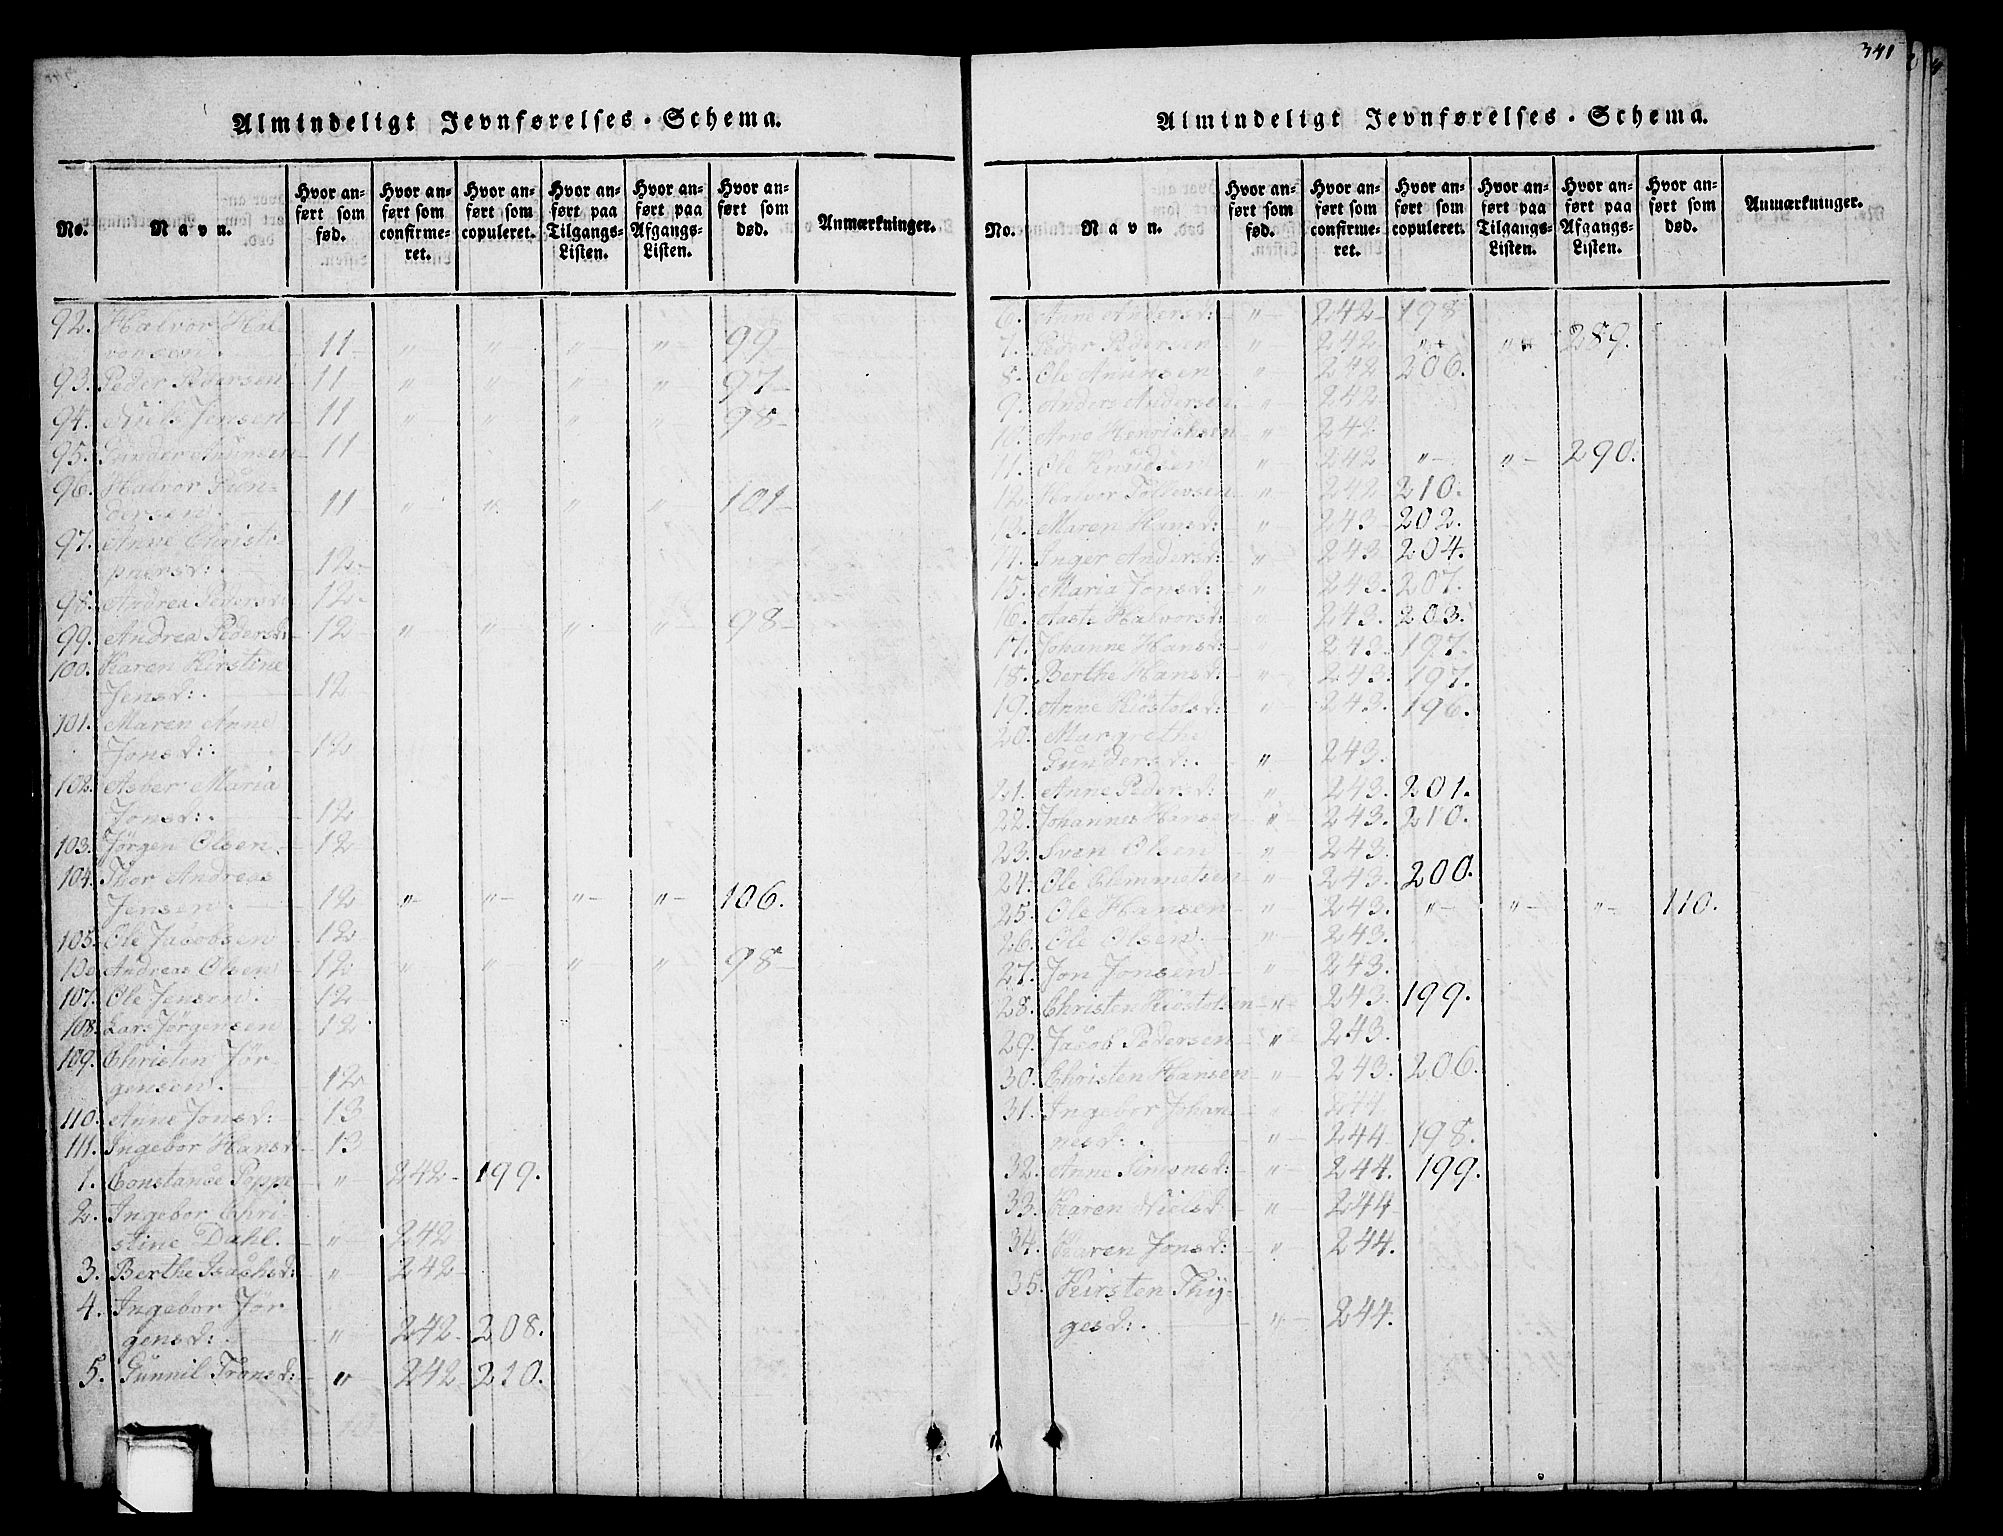 341
Almindeligt Jevnførelses-Schema.
No. Navn. Hvor anført som fød. Hvor anført som confirmeret. Hvor anført som copuleret. Hvor anført paa Tilgangs-Listen. Hvor anført paa Afgangs-Listen. Hvor anført som død. Anmærkninger.
92. Halvor Hal-
vorsen. 11 " " " " 99
93. Peder Pedersen 11 " " " " 97
94. Niels Jensen 11 " " " " 98
95. Gunder Anunsen 11
96. Halvor Gun-
dersen. 11 " " " " 101
97. Anne Christi-
phersd: 12
98. Andrea Pedersd: 12
99. Andrea Pedersd: 12 " " " " 98
100. Karen Kirstine
Jensd: 12
101. Maren Anne
Jonsd: 12
102. Asber Maria
Jonsd: 12
103. Jørgen Olsen 12
104. Thor Andreas
Jensen. 12 " " " " 106.
105. Ole Jacobsen 12
Andreas Olsen 12 " " " " 98
107. Ole Jensen. 12
108. Lars Jørgensen 12
109. Christen Jør-
gensen. 12
110. Anne Jonsd: 13
111. Ingebor Hansd: 13
1. Constance Poppe " 242 199.
2. Ingebor Chri-
stine Dahl. " 242
3. Berthe Isachsd: " 242
4. Ingebor Jør-
gensd: " 242 208.
5. Gunnil Transd: " 242 210.
Almindeligt Jevnførelses-Schema.
No. Navn. Hvor anført som fød. Hvor anført som confirmeret. Hvor anført som copuleret. Hvor anført paa Tilgangs-Listen. Hvor anført paa Afgangs-Listen. Hvor anført som død. Anmærkninger.
6. Anne Andersd: " 242 198
7. Peder Pedersen " 242 " " 289.
8. Ole Anunsen " 242 206.
9. Anders Andersen " 242
10. Arve Henrichsen " 242
11. Ole Knudsen " 242 " " 290.
12. Halvor Tollevsen " 242 210.
13. Maren Hansd: " 243 202.
14. Inger Andersd: " 243 204.
15. Maria Jonsd: " 243. 207.
16. Aaste Halvorsd: " 243. 203.
17. Johanne Hansd: " 243. 197.
18. Berthe Hansd: " 243. 197.
19. Anne Kiøstolsd: " 243. 196.
20. Margrethe
Gundersd: " 243.
21. Anne Pedersd: " 243. 201.
22. Johannes Hansen " 243. 210.
23. Sven Olsen " 243.
24. Ole Clemmetsen " 243. 200.
25. Ole Hansen " 243. " " " 110.
26. Ole Olsen. " 243.
27. Jon Jonsen " 243.
28. Christen Kiøstolsen " 243. 199.
29. Jacob Pedersen " 243.
30. Christen Hansen " 243. 206.
31. Ingebor Johan- " 244
nesd: " 244 198.
32. Anne Simonsd: " 244. 199.
33. Karen Nielsd: " 244
34. Karen Jonsd: " 244.
35. Kirsten Thy-
gesd: " 244.